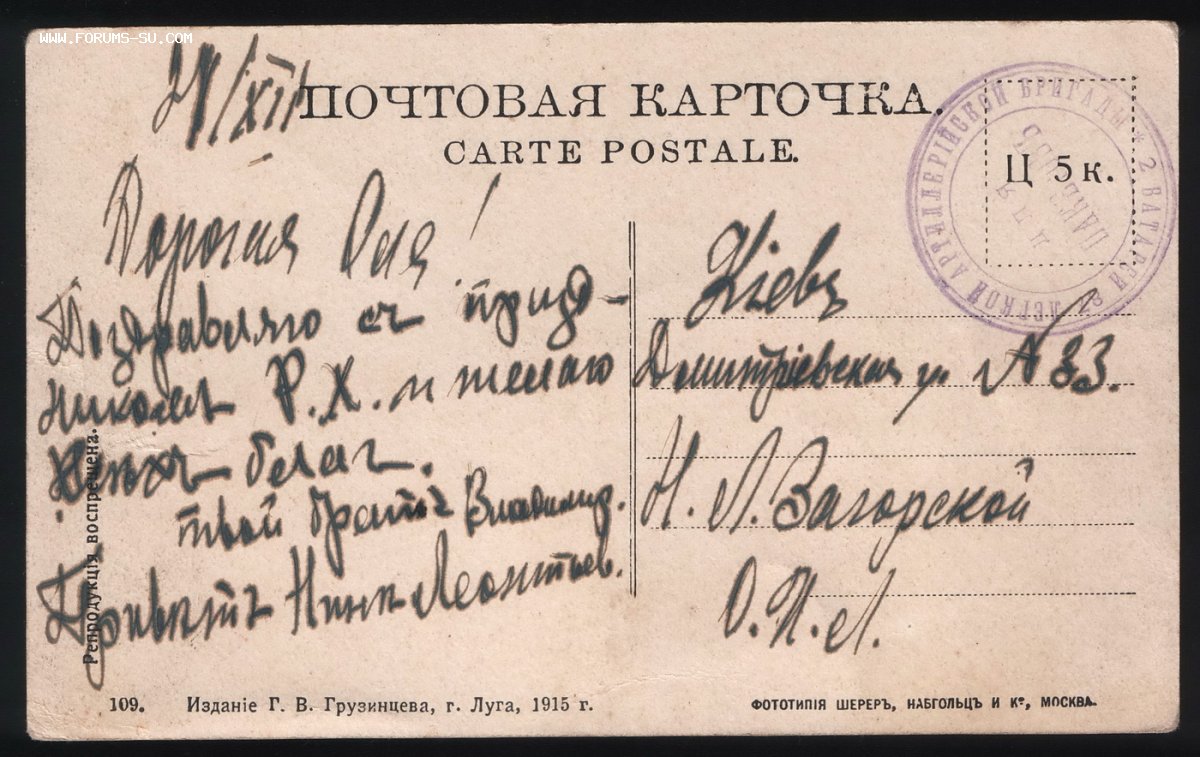 WWW.FORUMS-SU.COM
21/XII
ПОЧТОВАЯ КАРТОЧКА.
CARTE POSTALE.
Ц 5 к.
2 БАТАРЕИ 2 ЛЕГКОЙ АРТИЛЛЕРІЙСКОЙ БРИГАДЫ *
Дорогая Оля!
Поздравляю съ праздникомъ
Р. Х. и желаю
всѣхъ благъ.
твой братъ Владимир.
Привѣтъ Нинѣ Леонтьев.
Кіевъ
Дмитріевская у. № 33.
Н. Л. Загорской
О. П. Л.
Репродукція воспрещена.
109. Изданіе Г. В. Грузинцева, г. Луга, 1915 г.
ФОТОТИПІЯ ШЕРЕРЪ, НАБГОЛЬЦЪ И Кº, МОСКВА.